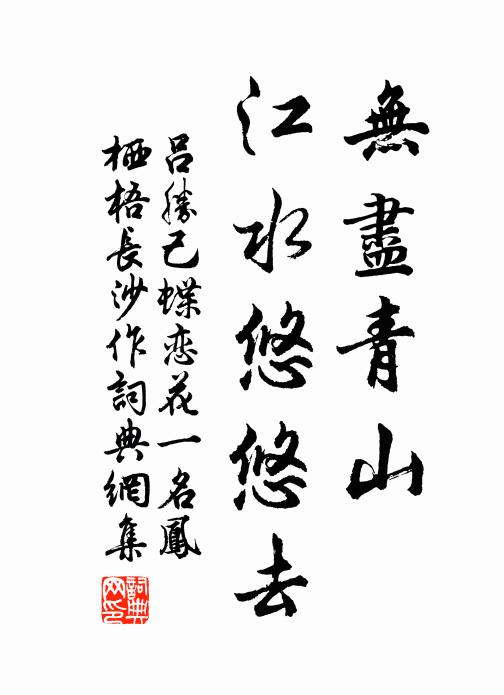 無盡青山
江水悠悠去
吕勝己蝶恋花一名鳳
栖梧長沙作詞典網集
詞典網印